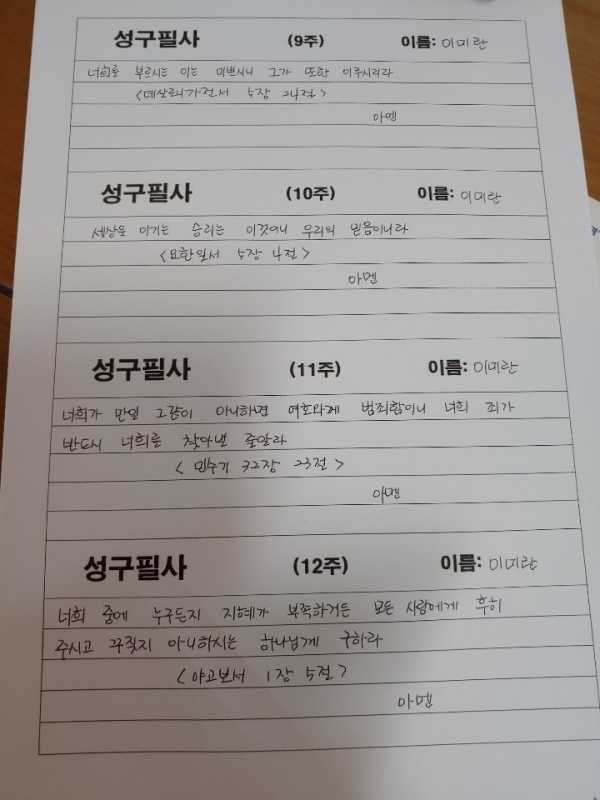 성구필사 (9주) 이름: 이미란
너희를 부르시는 이는 미쁘시니 그가 또한 이루시리라
<데살로니가전서 5장 24절>
아멘
성구필사 (10주) 이름: 이미란
세상을 이기는 승리는 이것이니 우리의 믿음이니라
<요한일서 5장 4절>
아멘
성구필사 (11주) 이름: 이미란
너희가 만일 그같이 아니하면 여호와께 범죄함이니 너희 죄가
반드시 너희를 찾아낼 줄알라
< 민수기 32장 23절 >
아멘
성구필사 (12주) 이름: 이미란
너희 중에 누구든지 지혜가 부족하거든 모든 사람에게 후히
주시고 꾸짖지 아니하시는 하나님께 구하라
<야고보서 1장 5절>
아멘